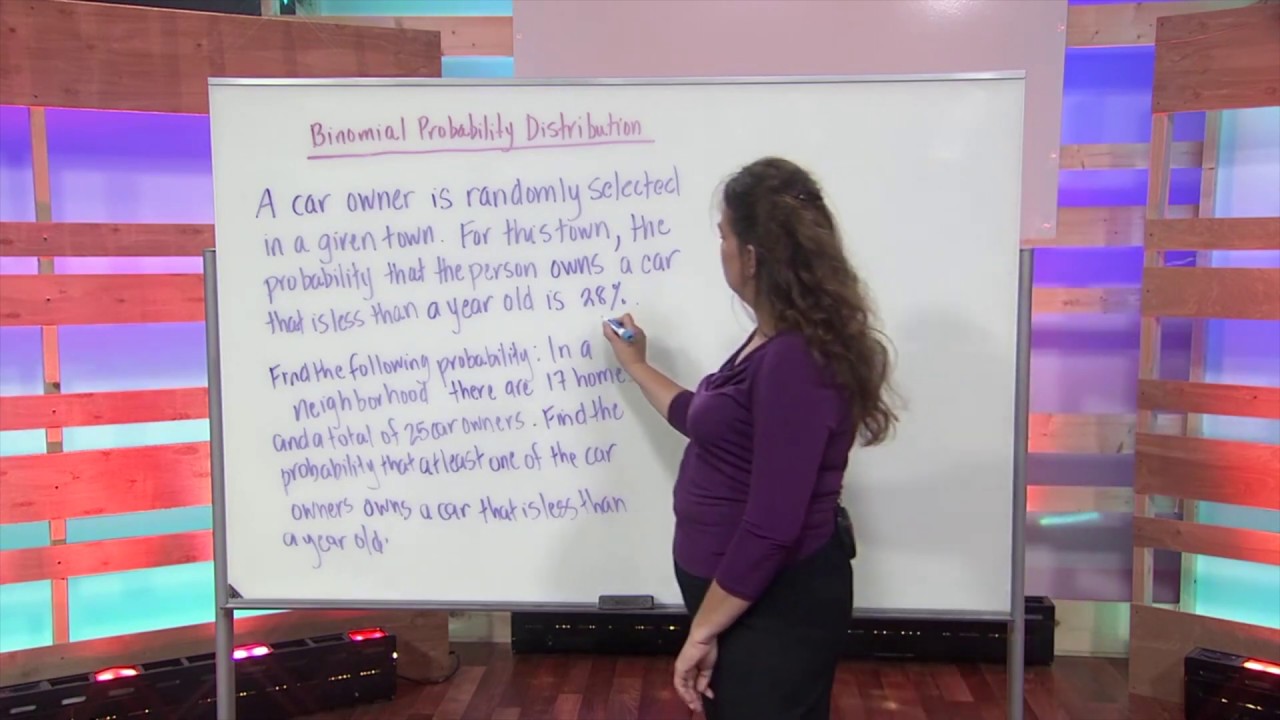 Binomial Probability Distribution
A car owner is randomly selected
in a given town. For this town, the
probability that the person owns a car
that is less than a year old is 28%.
Find the following probability: In a
neighborhood there are 17 home
and a total of 25 car owners. Find the
probability that at least one of the car
owners owns a car that is less than
a year old.